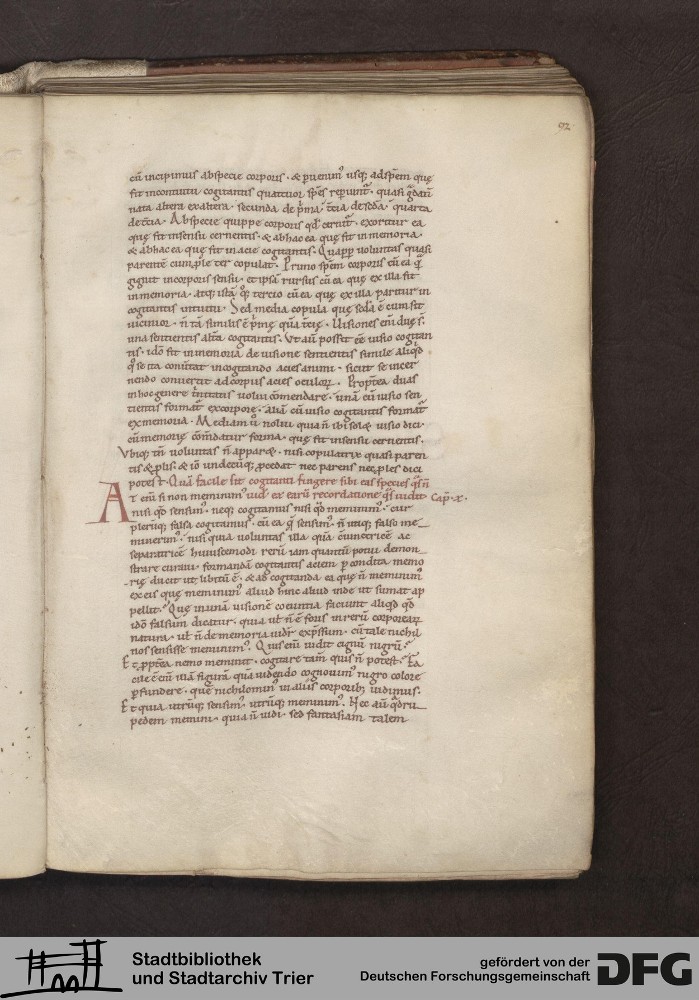 92
cū incipimus abspecie corporis · & ꝑuenim᷒ usq; adspēm quę
fit incontuitu cogitantis quattuor spēs repiunt᷒ · quasi gͣdatī
nata altera exaltera · secunda de pͥma · t͛cia desecͣda · quarta
det͛cia · Abspecie quippe corporis qđ cernit᷒ · exoritur ea
quę fit insensu cernentis · & abhac ea quę fit inmemoria ·
& abhac ea quę fit inacie cogitantis · Quapp̄ voluntas quasi
parentē cumꝓle ter copulat · Primo spēm corporis cū ea q̄
gignit incorporis sensu · et ipsā rursus cū ea quę ex illa fit
inmemoria · atq; istā q̊q; tercio cū ea quę ex illa paritur in
cogitantis intuitu · Sed media copula quę secͣda ē cum sit
uicinior · ñ tā similis ē pͥmę quā t͛cię · Uisiones eni̅ duę s̄ ·
una sentientis alt͛a cogitantis · Ut aū possit ēē uisio cogitan
tis · idō fit inmemoria de uisione sentientis simile aliqͥd
qͦ se ita cōuertat incogitando acies animi · sicut se incer
nendo conuertit adcorpus acies oculoꝝ · Propt͛ea duas
inhoc genere tͥnitatis uolui cōmendare · unā cū uisio sen
tientis format᷒ excorpore · aliā cū uisio cogitantis format᷒
ex memoria · Mediam ū nolui quia ñ ibi solęt uisio dici ·
cū memorię cōmdatur forma · quę fit insensu cernentis ·
Vbiq; tn̄ voluntas ñ apparet · nisi copulatrix quasi paren
tis & ꝓlis · & iō undecūq; ꝓcedat nec parens nec ꝓles dici
potest · Quā facile sit cogitanti fingere sibi eas species qͣs ñ
At eni̅ si non meminim᷒ uid͛ ex earū recordatione qͣs uidit Cap̄ · x ·
nisi qđ sensim᷒ · neq; cogitamus nisi qđ meminim᷒ · cur
pleruq; falsa cogitamus · cū ea q̄ sensim᷒ · ñ utiq; falso me
minerim᷒ · nisi quia voluntas illa quā cōiunctricē ac
separatricē huiuscemodi rerū iam quantū potui demon
strare curaui · formandā cogitantis aciem ꝑ condita memo
rię ducit ut libitū ē · & ad cogitanda ea quę ñ meminim᷒
ex eis quę meminim᷒ aliud hinc aliud inde ut sumat ap
pellit · Quę inunā uisionē coeuntia faciunt aliqͥd qđ
idō falsum dicatur · quia ut̄ ñ ē foris inrerū corporearꝝ
natura · ut̄ ñ de memoria uid͛r exp̄ssum · cū tale nichil
nos sensisse meminim᷒ · Quis eni̅ uidit cignū nigrū ·
Et ꝓpt͛ea nemo meminit · cogitare tam̄ quis ñ potest · Fa
cile ē eni̅ illā figurā quā uidendo cognouim᷒ nigro colore
ꝑfundere · quē nichilomin᷒ inaliis corporib; uidimus ·
Et quia utrūq; sensim᷒ · utrūq; meminim᷒ · Nec aū q̄dru
pedem memini · quia ñ uidi · sed fantasiam talem
Stadtbibliothek
und Stadtarchiv Trier
gefördert von der
Deutschen Forschungsgemeinschaft DFG